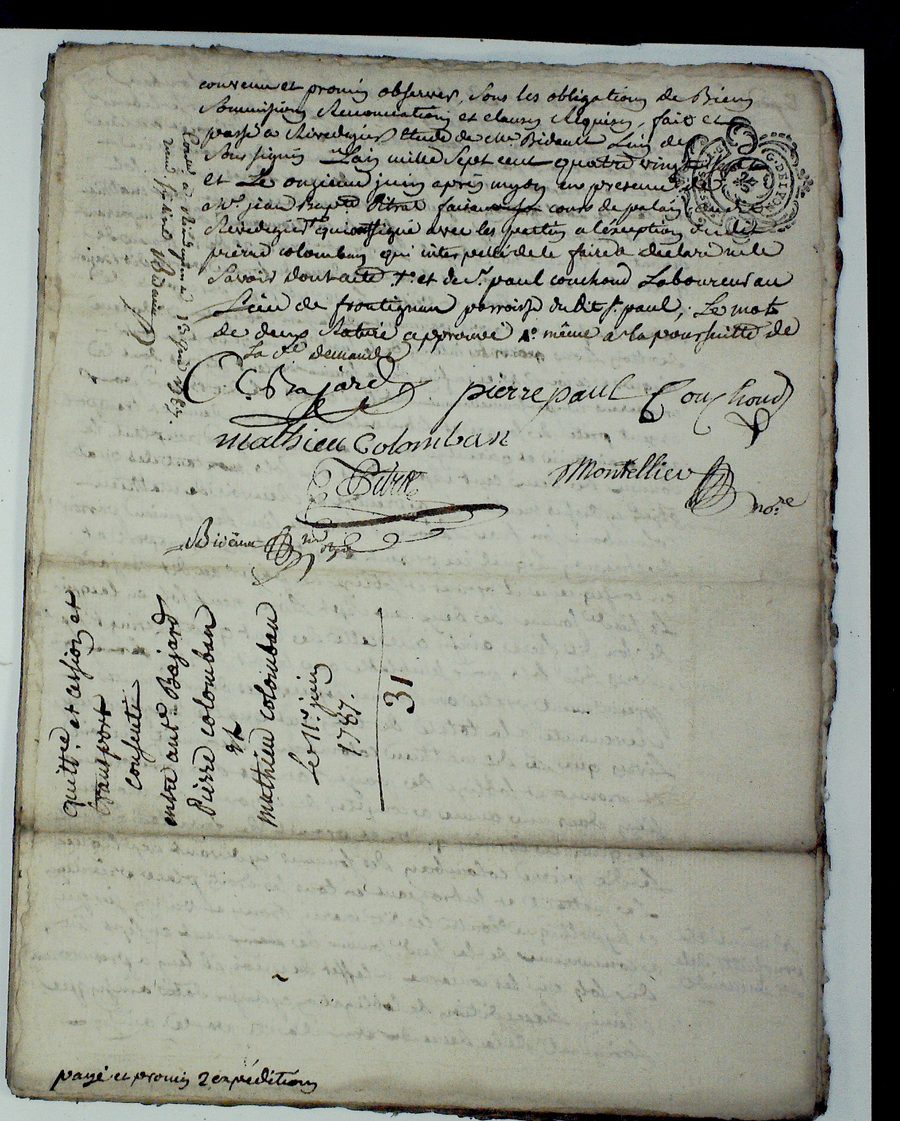 convenu et promis observer, sous les obligations de Biens
Soumissions Renonciations et clauses Requises, fait et
passé a Rivedegier Etude de Me Bideault L'un des
Soussignés L'an mille sept cent quatre vingt
et Le onzieme juin après mydy en presence
Mr. jean Bapte faisant cours de palais
Rivedegier qui ont signé avec les parties a l'exeption dudit
pierre colomban qui interpellé de le faire a declaré ne le
savoir dont acte et de Sr. paul couchoud Laboureur au
Lieu de frontignan parroisse dudit St. paul, Le mot
de deux Raturé approuvé même a la poursuitte de
La de demande
C. Bajard pierre paul Couchoud
mathieu colomban
Montellier
no.re
Bideault
1787.
quittce. et cession et
transport
consenti
entre ante Bajard
Pierre colomban
et
mathieu colomban
Le 11e. juin
1787.
31
payé et promis 2 expeditions